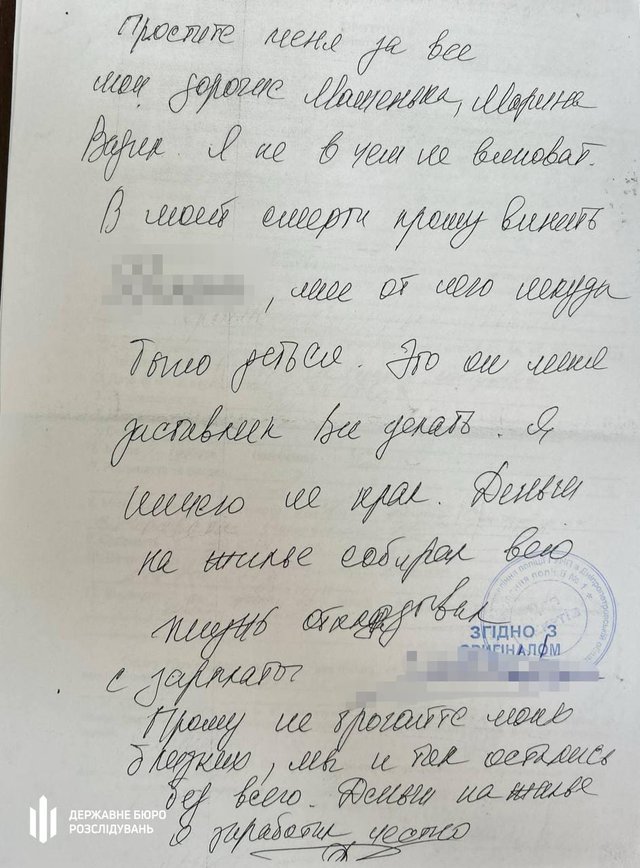 Простите меня за все
мои дорогие Машенька, Марина
Вадик. Я не в чем не виноват.
В моей смерти прошу винить
, мне от него некуда
было деться. Это он меня
заставлял все делать. Я
ничего не крал. Деньги
на жилье собирал всю
жизнь откладывал
с зарплаты
ЗГІДНО З
ОРИГІНАЛОМ
Прошу не трогайте мою
, мы и так остались
без всего. Деньги на жилье
я заработал честно
ДЕРЖАВНЕ БЮРО
РОЗСЛІДУВАНЬ